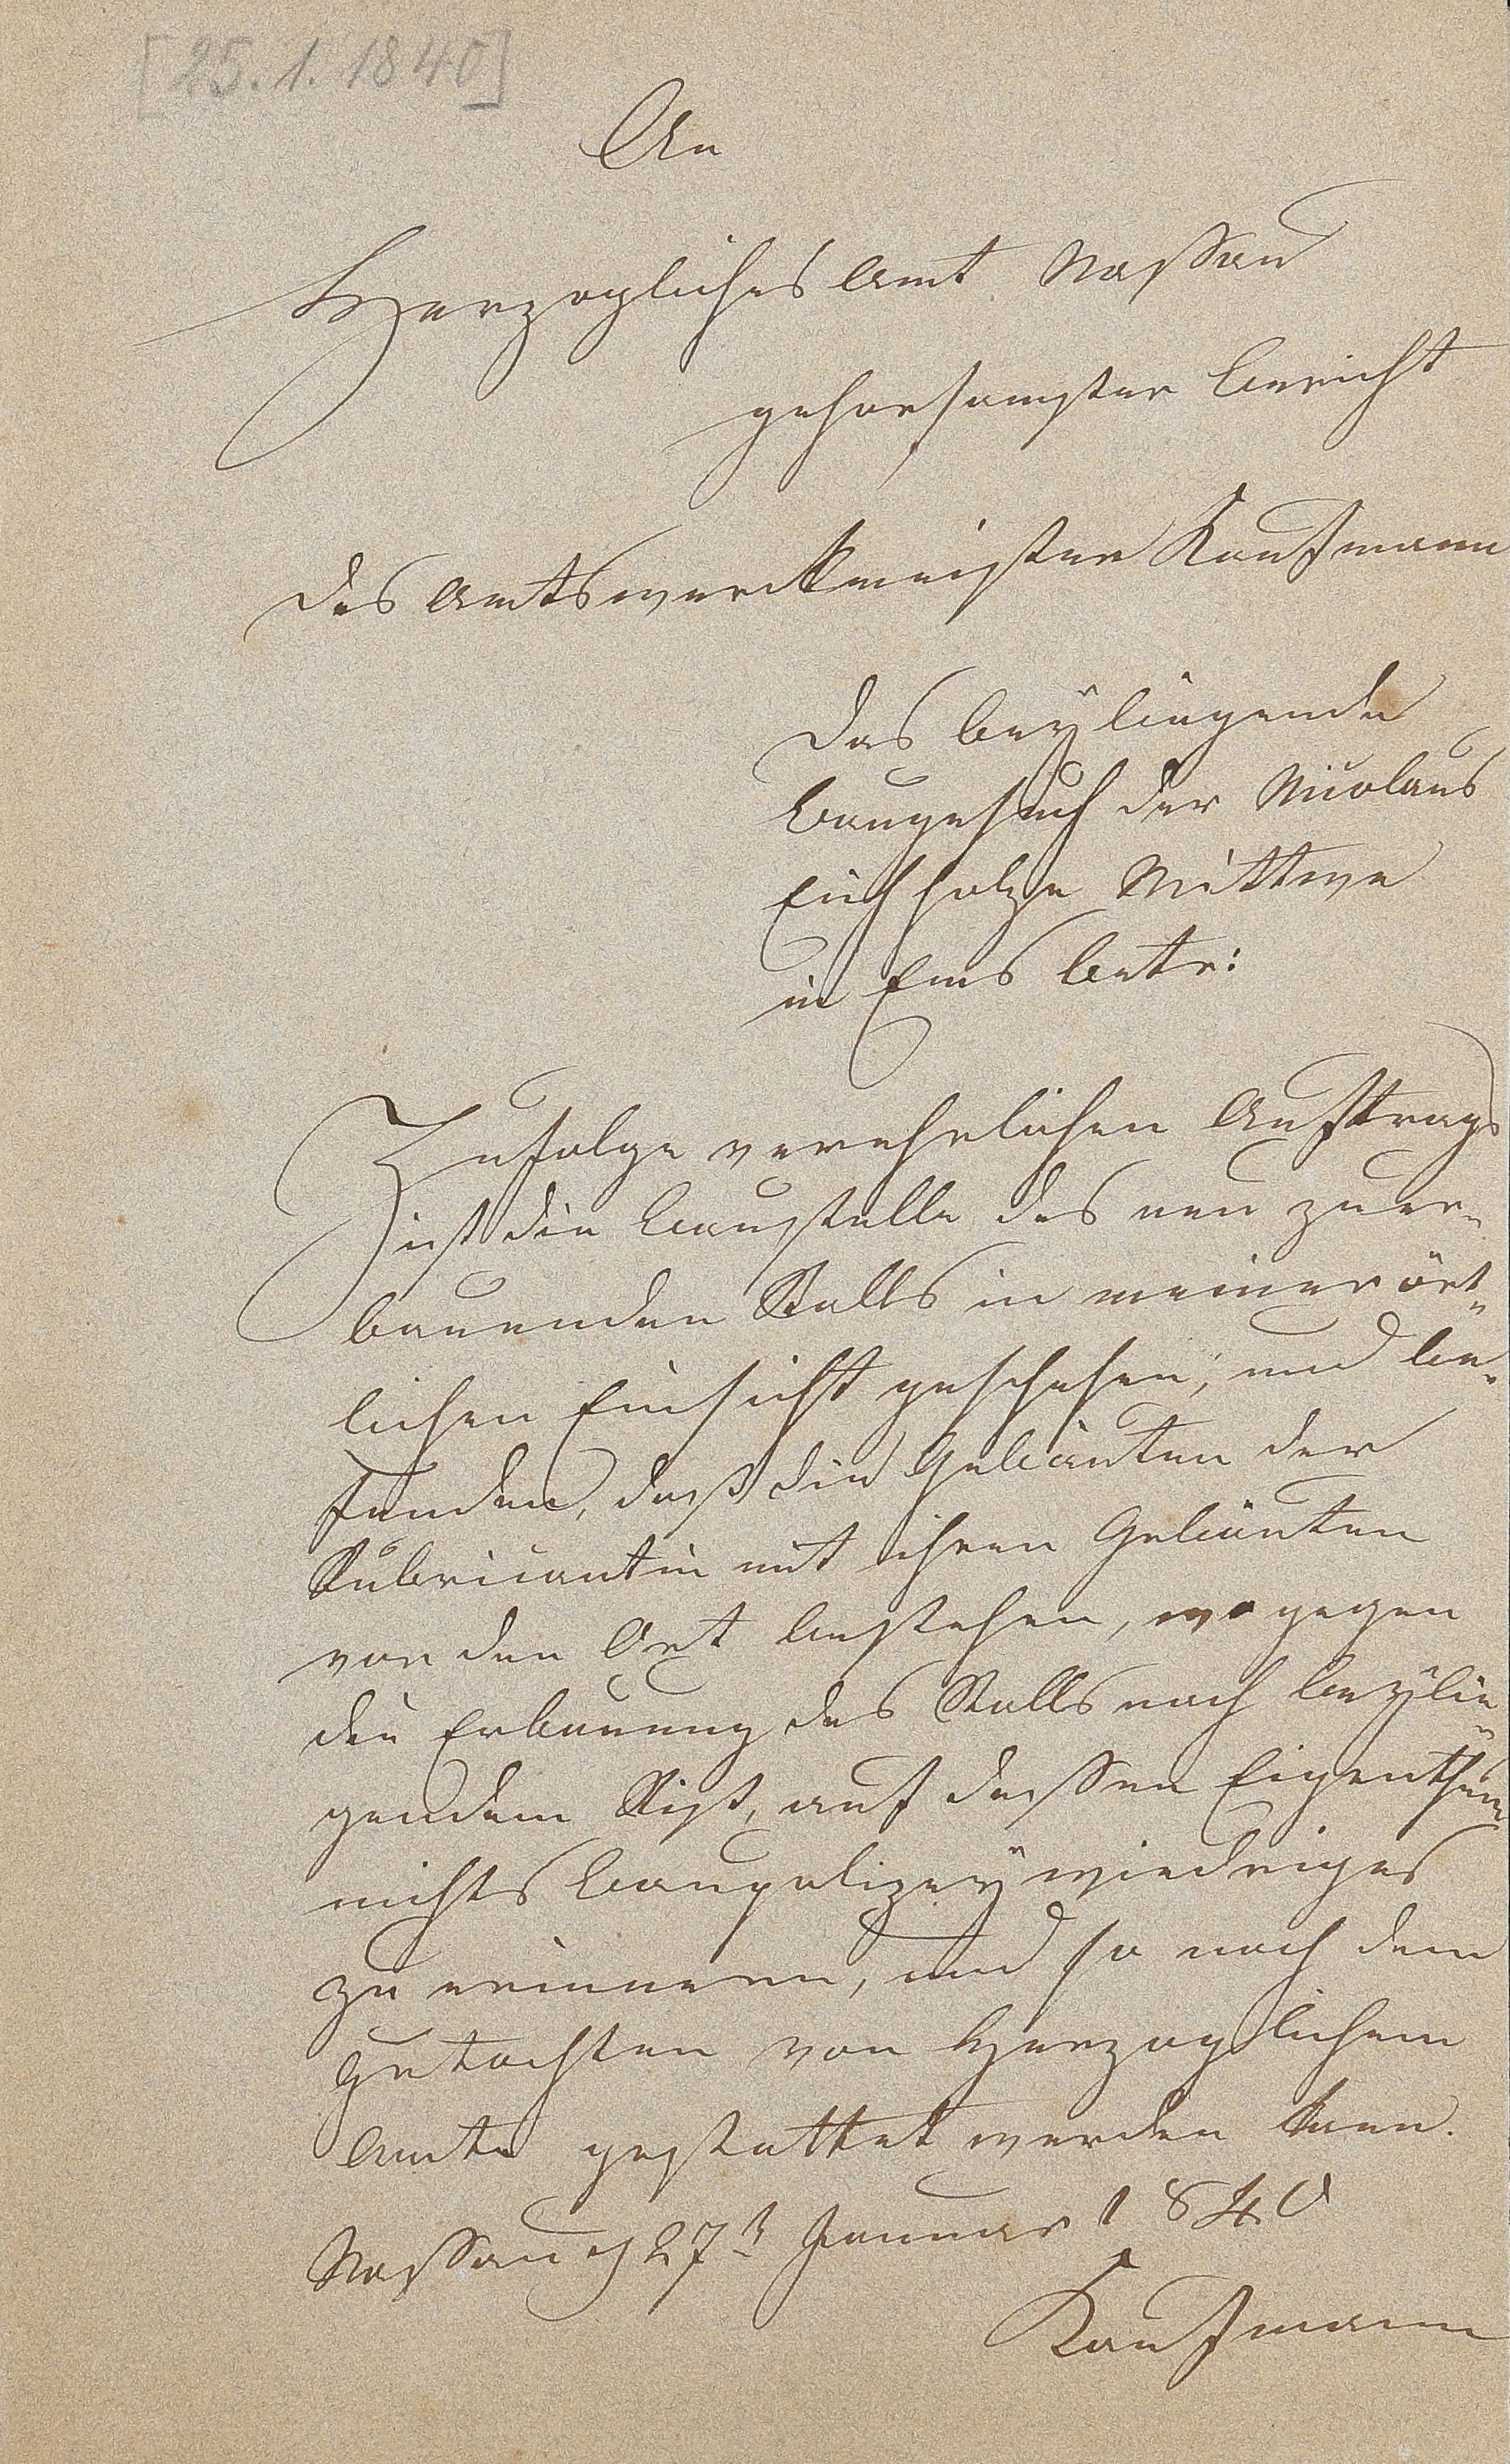 [25.1.1840]
An
Herzogliches Amt Nassau
gehorsamster Bericht
des Amtswerckmeister Kaufmann
das beÿliegende
Baugesuch der Nicolaus
Eichholze Wittwe
in Ems betr:
Zufolge verehrlichen Auftrags
ist die Baustelle des neu zuer-
bauenden Stalls in meiner ört-
lichen Einsicht geschehen, und be-
funden, daß die Gebäuten der
Rubricantin mit ihren Gebäuten
vor den Ort bestehen, wogegen
die Erbauung des Stalls nach beÿlie-
gendem Riß, auf dessen Eigenthum
nichts baupolizeÿ wiedriges
zu erinnern, und so nach dem
Gutachten von Herzoglichem
Amte gestattet werden kann.
Nassau d 27t Januar 1840
Kaufmann